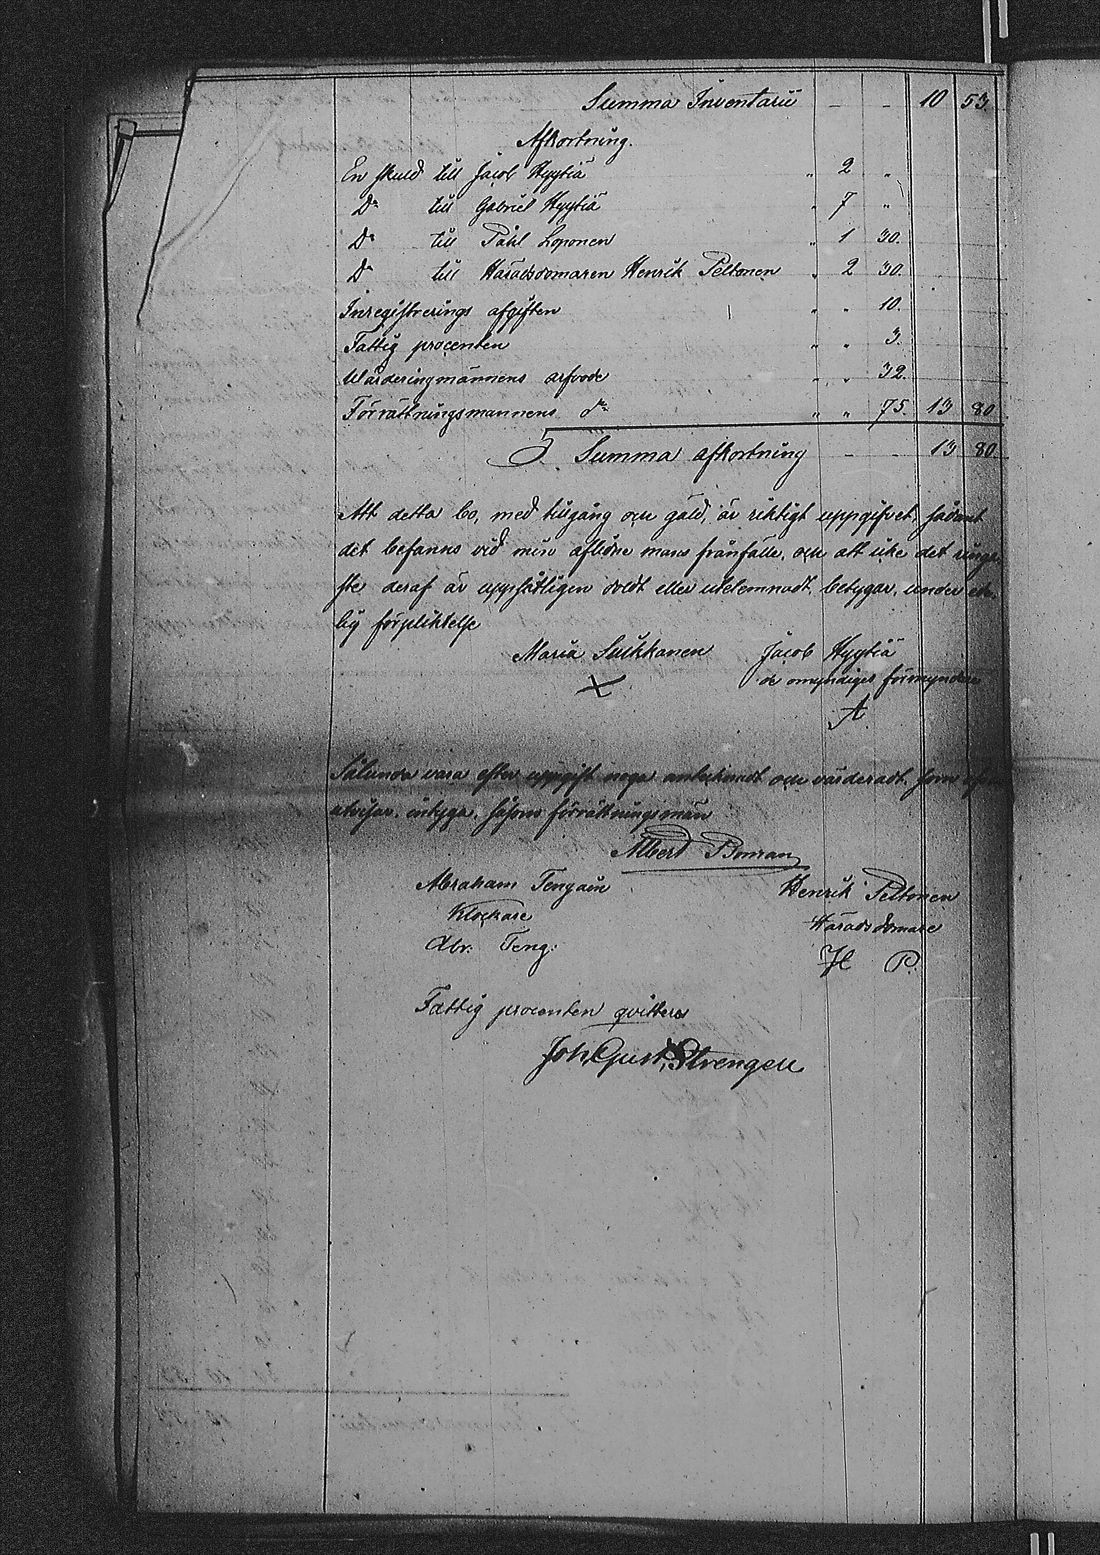 Summa Inventarii - - 10 53.
Afkortning.
En skuld till Jacob Hyytiä " 2 "
Do till Gabriel Hyytiä " 7 "
Do till Påhl Loponen " 1 30.
Do till Häradsdomaren Henrik Peltonen " 2 30.
Inregistrerings afgiften " " 10.
Fattig procenten " " 3.
Wärderingmännens arfvode " " 32.
Förrättningsmannens do " " 75. 13 80
S. Summa afkortning - - 13 80.
Att detta bo, med tillgång och gäld, är riktigt uppgifvet, sådant
det befanns vid min aflidne mans frånfälle, och att icke det ringa-
ste deraf är uppsåtligen döldt eller utelemnadt, betygar, under ed-
lig förpliktelse
Maria Suikkanen Jacob Hyytiä
X de omyndiges förmyndare
A
Sålunda vara efter uppgift noga antecknadt och värderadt, som
utvisar, intyga, såsom förrättningsmän
Albert Boman
Abraham Tengain Henrik Peltonen
Klockare Häradsdomare
Abr: Teng: H P.
Fattig procenten qvitteras
Joh, Gust, Strengell